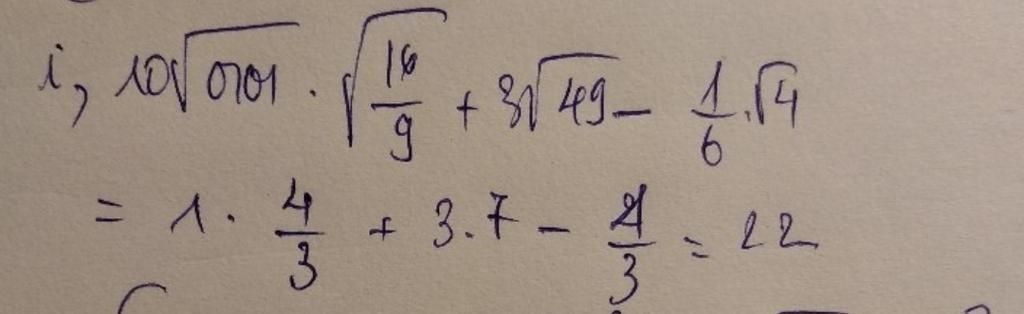 i, 10√0,01 . √16/9 + 3√49 - 1/6.√4
= 1. 4/3 + 3.7 - 1/3 = 22